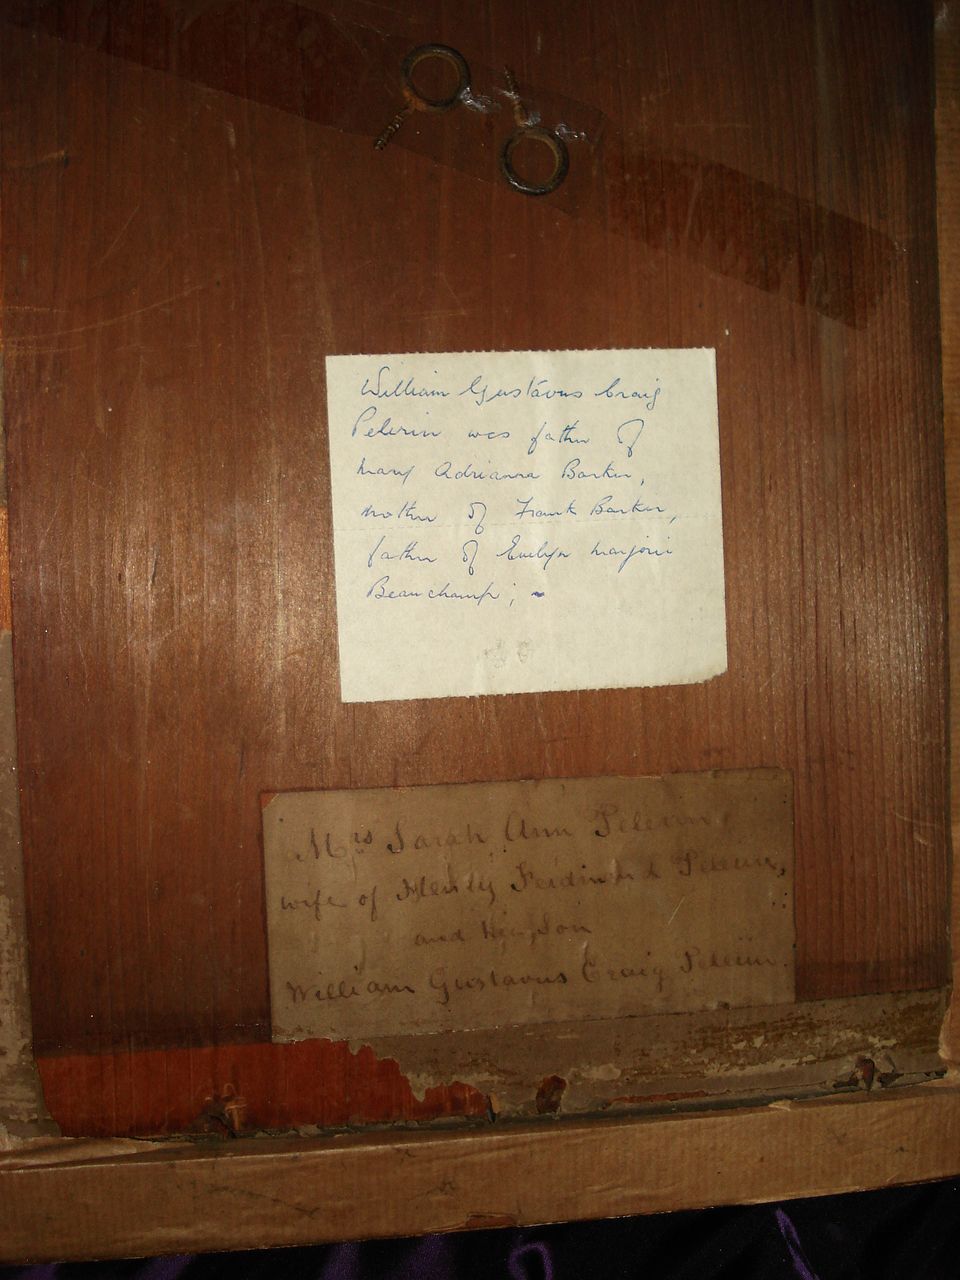 William Gustavus Craig
Pelerin was father of
Mary Adrianna Barker,
mother of Frank Barker,
father of Evelyn Marjorie
Beauchamp; -
Mrs Sarah Ann Pelerin
wife of Henry Ferdinand Pelerin,
and Her Son
William Gustavus Craig Pelerin.